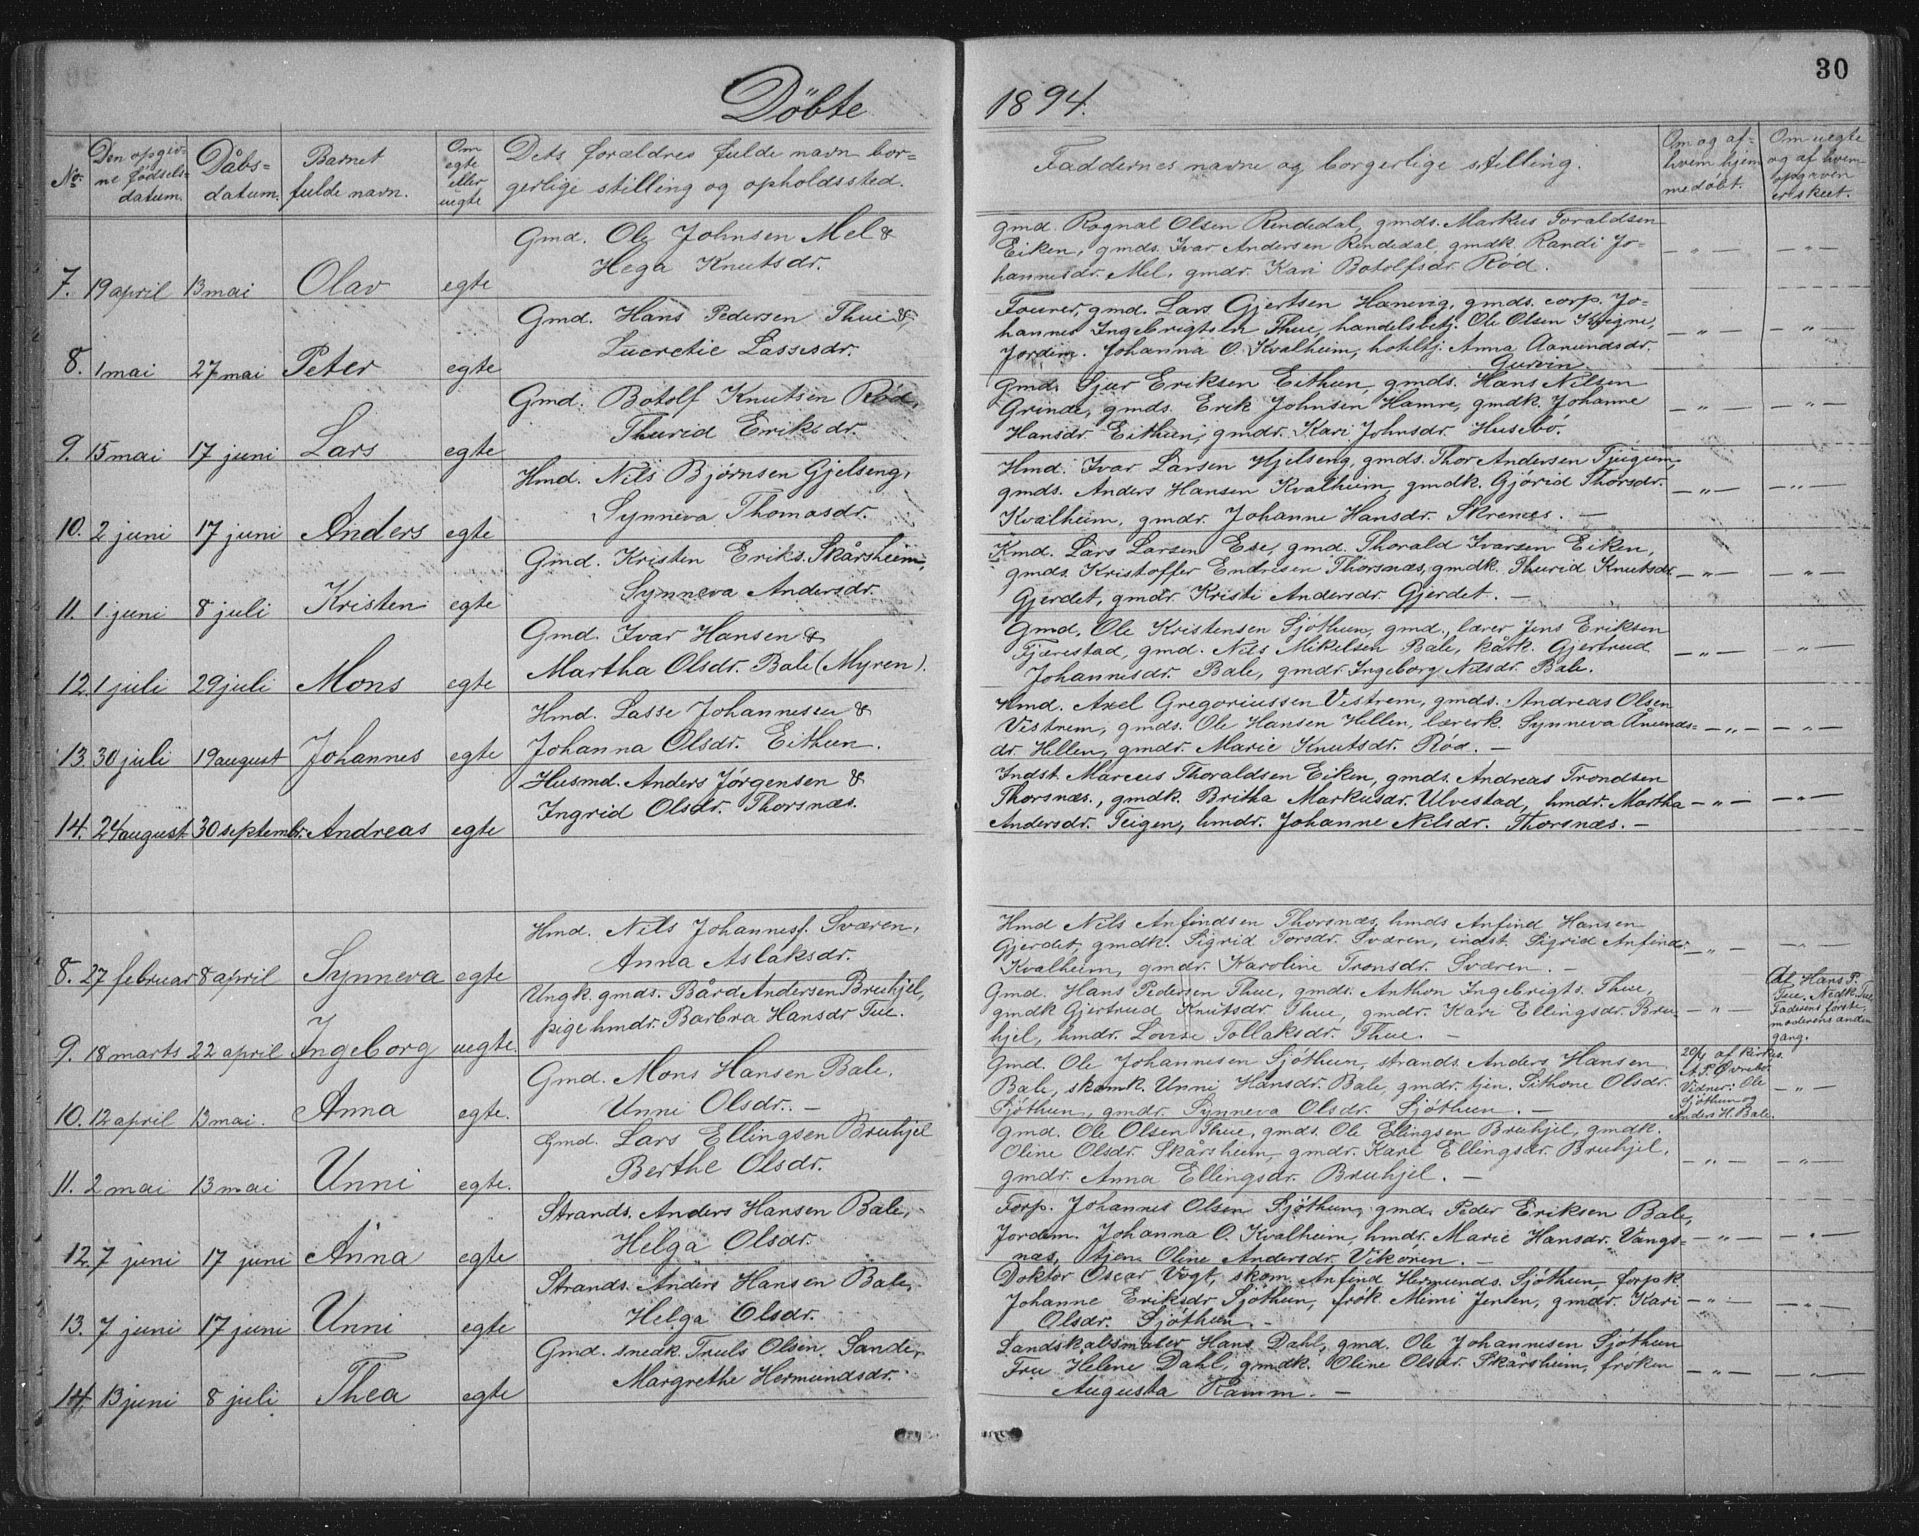 30
Döbte 1894.
No.
Den opgiv-
ne fødsels-
datum.
Dåbs-
datum.
Barnet
fulde navn.
Om
egte
eller
uegte
Dets forældres fulde navn bor-
gerlige stilling og opholdssted.
Faddernes navne og borgerlige stilling.
Om og af
hvem hjem
medøbt.
Om uegte
og af hvem
opgiven
erskeet.
Gmd. Ole Johnsen Mel &
Hega Knutsdr.
7. 19 april 13 mai Olav egte
Gmd. Rognal Olsen Rendedal, gmds. Markus Toraldsen
Eiken, gmds. Ivar Andersen Rendedal, gmdk. Randi Jo-
hannesdr. Mel, gmdr. Kari Botolfsdr. Rød.
Gmd. Hans Pedersen Thue &
Lucretie Lassesdr.
8. 1 mai 27 mai Peter egte
Fourer, gmd. Lars Gjertsen Hanevig, gmds. corp. Jo-
hannes Ingebrigtsen Thue, handelsbetj. Ole Olsen Kvigne,
Jordm. Johanna O. Kvalheim, hoteltj. Anna Aamundsdr.
Gurvin.
Gmd. Botolf Knutsen Rød,
Thurid Eriksdr.
9. 15 mai 17 juni Lars egte
Gmd. Sjur Eriksen Eithun, gmds. Hans Nilsen
Grinde, gmds. Erik Johnsen Hamre, gmdk. Johanne
Hansdr. Eithun, gmdr. Kari Johnsdr. Husebö.
Hmd. Nils Bjørnsen Gjelseng,
Synneva Thomasdr.
10. 2 juni 17 juni Anders egte
Hmd. Ivar Larsen Hjelseng, gmds. Thor Andersen Tjugum,
gmds. Anders Hansen Kvalheim, gmdk. Gjørid Thorsdr.
Kvalheim, gmdr. Johanne Hansdr. Skrenes. —
Gmd. Kristen Eriks. Skårsheim,
Synneva Andersdr.
11. 1 juni 8 juli Kristen egte
Kmd. Lars Larsen Ese, gmd. Thorald Ivarsen Eiken,
gmds. Kristoffer Endresen Thorsnæs, gmdk. Thurid Knutsdr
Gjerdet, gmdr. Kristi Andersdr. Gjerdet. —
Gmd. Ivar Hansen &
Martha Olsdr. Bale (Myren).
12. 1 juli 29 juli Mons egte
Gmd. Ole Kristensen Sjøthun, gmd., lærer Jens Eriksen
Fjærestad, gmd. Nils Mikelsen Bale, kårk. Gjertrud
Johannisdr. Bale, gmdr. Ingeborg Nilsdr. Bale.
Hmd. Lasse Johannesen &
Johanna Olsdr. Eithun.
13. 30 juli 19 august Johannes egte
Hmd. Axel Gregoriussen Vistrem, gmds. Andreas Olsen
Vistrem, gmds. Ole Hansen Hellen, lærerk. Synneva Åmunds-
dr. Hellen, gmdr. Marie Knutsdr. Rød. —
Husmd. Anders Jørgensen &
Ingrid Olsdr. Thorsnæs.
14. 24 august 30 septembr. Andreas egte
Indst. Marcus Thoraldsen Eiken, gmds. Andreas Trondsen
Thorsnæs., gmdk. Britha Markusdr. Ulvestad, hmdr. Martha
Andersdr. Teigen, hmdr. Johanne Nilsdr. Thorsnæs. —
Hmd. Nils Johannesf. Sværen,
Anna Aslaksdr.
8. 27 februar 8 april Synneva egte
Hmd Nils Anfindsen Thorsnæs, hmds Anfind Hansen
Gjerdet, gmdk. Sigrid Torsdr. Sværen, indst. Sigrid Anfindr
Kvalheim, gmdr. Karoline Tronsdr. Sværen. —
Ungk. gmds. Bård Andersen Bruhjel,
pige hmdr. Barbra Hansdr Tue.
9. 18 marts 22 april Ingeborg uegte.
Gmd. Hans Pedersen Thue, gmds. Anthon Ingebrigts. Thue,
gmdk Gjertrud Knutsdr. Thue, gmdr. Kari Ellingsdr. Bru-
hjel, hmdr. Lovise Tollaksdr. Thue. —
Af Hans P.
Tue. Nedk. Tue
Faderens første,
moderens anden
gang.
Gmd. Mons Hansen Bale,
Unni Olsdr. —
10. 12 april 13 mai. Anna egte.
Gmd. Ole Johannesen Sjøthun, strands. Anders Hansen
Bale, skomk. Unni Hansdr. Bale, gmdr. tjen. Sithone Olsdr.
Sjøthun, gmdr. Synneva Olsdr. Sjøthun. —
20/4 af kirkes.
A. P. Øvrebø.
Vidner: Ole
Sjøthun og
Anders H. Bale.
Gmd. Lars Ellingsen Bruhjel
Berthe Olsdr.
11. 2 mai 13 mai Unni egte.
Gmd. Ole Olsen Thue, gmds. Ole Ellingsen Bruhjel, gmdk.
Oline Olsdr. Skårsheim, gmdr. Kari Ellingsdr. Bruhjel,
gmdr. Anna Ellingsdr. Bruhjel. —
Strands. Anders Hansen Bale,
Helga Olsdr.
12. 7 juni 17 juni Anna egte
Forp. Johannes Olsen Sjøthun, gmd. Peder Eriksen Bale,
Jordem. Johanna O. Kvalheim, hmdr. Marie Hansdr. Vangs-
næs, tjen. Oline Andersdr. Vikören. —
Strands. Anders Hansen Bale,
Helga Olsdr.
13. 7 juni 17 juni Unni egte
Doktor Oscar Vogt, skom. Anfind Hermunds. Sjöthun, forpk.
Johanne Eriksdr Sjøthun, frøk. Mimi Jensen, gmdr. Kari
Olsdr. Sjöthun. —
Gmd. snedk. Truls Olsen Sande,
Margrethe Hermundsdr.
14. 13 juni 8 juli Thea egte
Landskabsmaler Hans Dahl, gmd. Ole Johannesen Sjöthun
Fru Helene Dahl, gmdk. Oline Olsdr. Skårsheim, frøken
Augusta Ramm. —